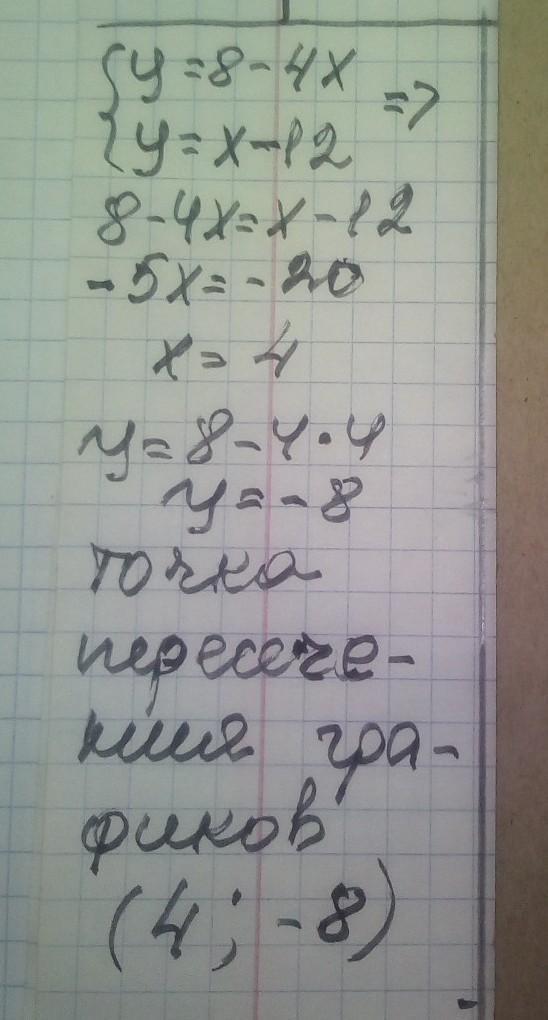 {y=8-4x
{y=x-12 =>
8-4x=x-12
-5x=-20
x=4
y=8-4·4
y=-8
точка
пересече-
ния гра-
фиков
(4; -8)